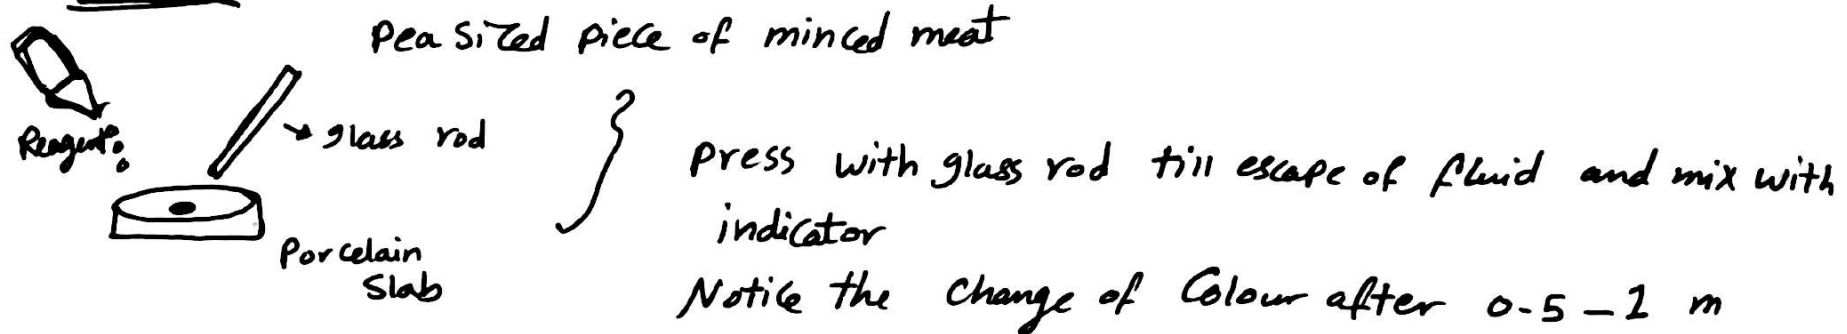 Pea Sized piece of minced meat
Reagent
glass rod
Porcelain
Slab
Press with glass rod till escape of fluid and mix with
indicator
Notice the change of Colour after 0.5 - 1 m